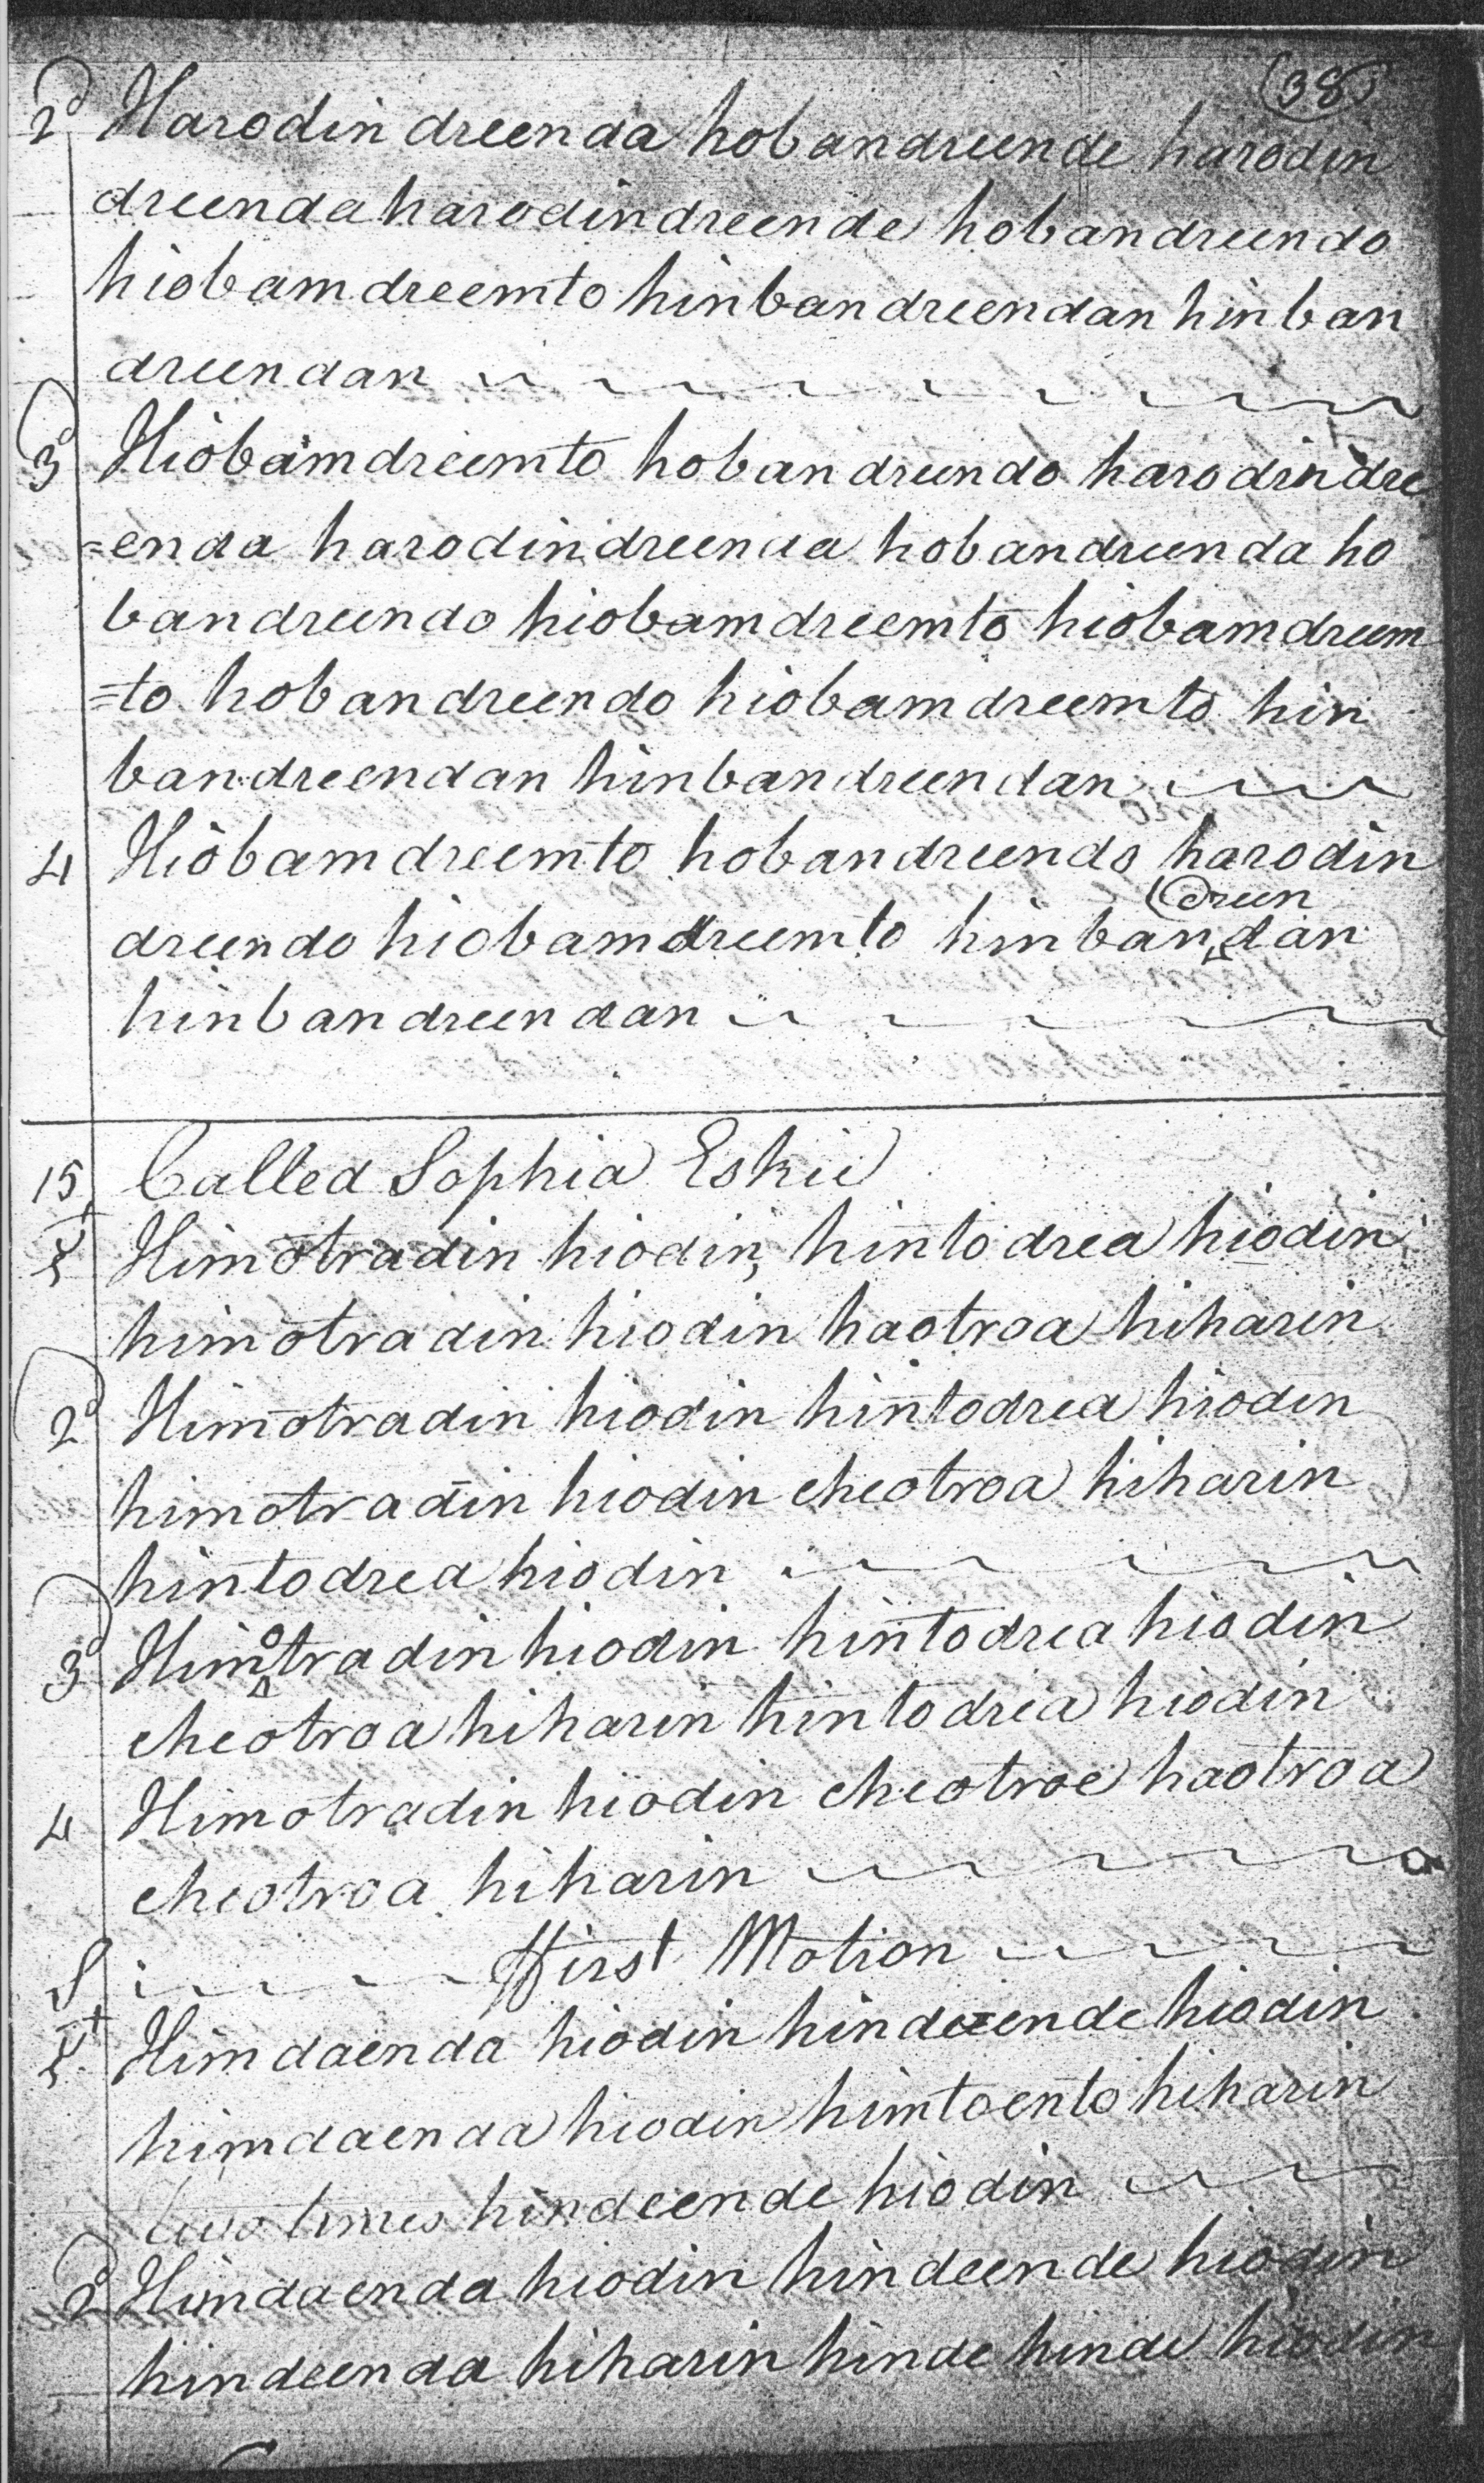 (38)
2d Harodin dreenda hobandreende harodin
dreenda harodindreende hobandreendo
hiobamdreemto hinbandreendan hinban
dreendan
3d Hiobamdreemto hobandreendo harodindre
=enda harodindreenda hobandreenda ho
bandreendo hiobamdreemto hiobamdreem
=to hobandreendo hiobamdreemto hin
bandreendan hinbandreendan
4 Hiobamdreemto hobandreendo harodin
dreen
dreendo hiobamdreemto hinbandan
hinbandreendan
15 Called Sophia Eskie
Himotradin hiodin, hintodrea hiodin
himotradin hiodin haotroa hiharin
2d Himotradin hiodin hintodrea hiodin
himotradin hiodin cheotroa hiharin
hintodrea hiodin
3d Himotradin hiodin hintodrea hiodin
cheotroa hiharin hintodria hiodin
4 Himotradin hiodin cheotroe haotroa
cheotroa hiharin
S First Motion
Himdaenda hiodin hindeende hiodin
himdaenda hiodin himtoento hiharin
two times hindeende hiodin
2d Himdaenda hiodin hindeende hiodin
hindeenda hiharin hinde hinde hiodin